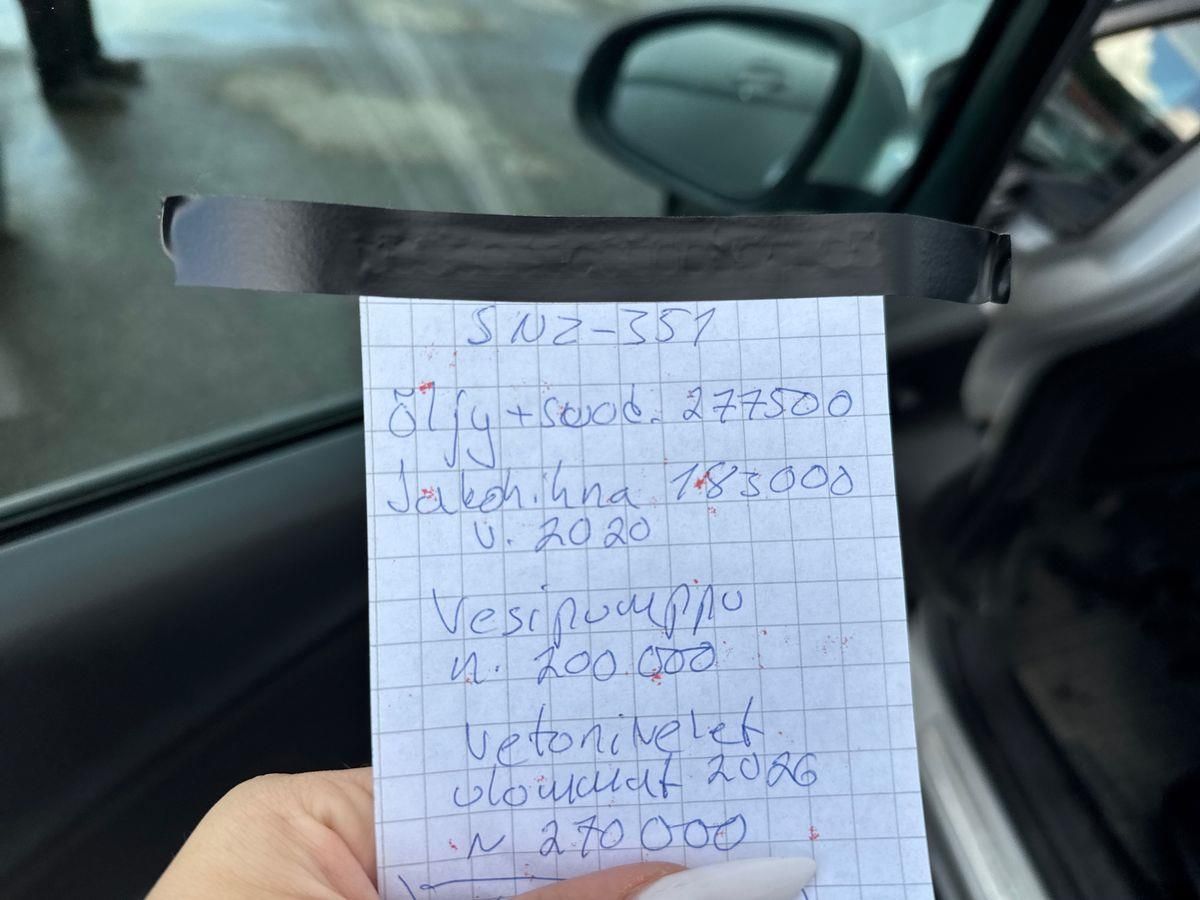 SNZ-351
Öljy + suod. 277500
Jakohihna 183000
v. 2020
Vesipumppu
n. 200.000
Vetonivelet
ulommat 2026
n 270000